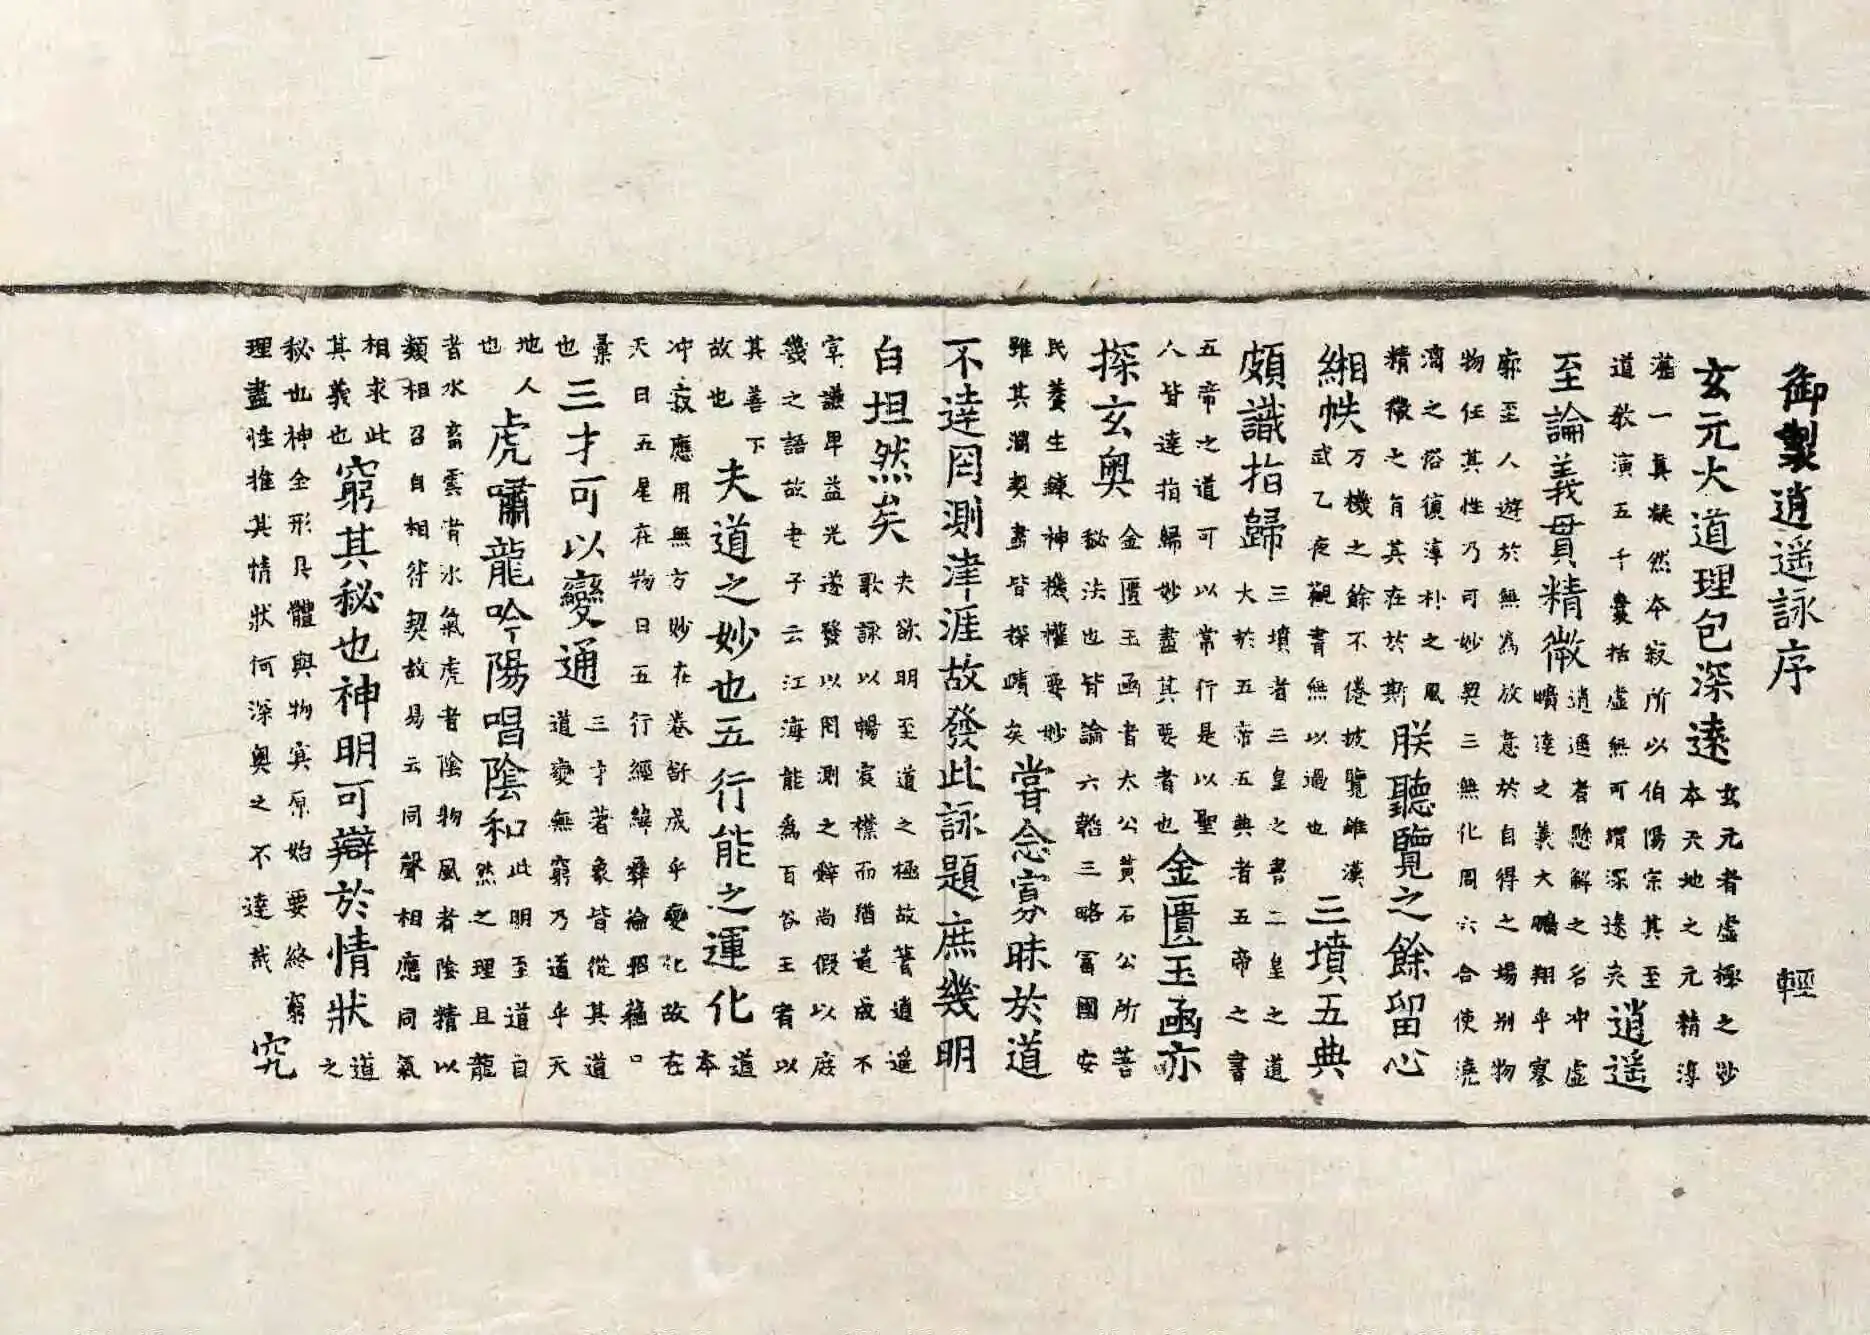 御製逍遥詠序 輕
玄元大道理包深遠
玄元者虛極之妙
本天地之元精淳
湛一真凝然本寂所以伯陽宗其至
道敎演五千囊括虛無可謂深遠矣
逍遥
至論義貫精微
逍遥者懸解之名冲虛
曠達之義大鵬翔乎寥
廓至人遊於無為放意於自得之場別物
物任其性乃可妙契三無化周六合使澆
漓之俗復淳朴之風
精微之旨其在於斯
朕聽覽之餘留心
緗帙
万機之餘不倦披覽雖漢
武乙夜觀書無以過也
三墳五典
頗識指歸
三墳者三皇之書二皇之道
大於五帝五典者五帝之書
五帝之道可以常行是以聖
人皆達指歸妙盡其要者也
金匱玉函亦
探玄奥
金匱玉函者太公黄石公所菩
秘法也皆論六韜三略冨國安
民養生練神機權要妙
雖其淵契盡皆探賾矣
甞念寡昧於道
不達罔測津涯故發此詠題庶幾明
白坦然矣
夫欲明至道之極故著逍遥
歌詠以暢宸襟而猶道成不
宰謙卑益光遂發以罔測之辭尚假以庶
幾之語故老子云江海能為百谷王者以
其善下
故也
夫道之妙也五行能之運化
道
本
冲寂應用無方妙在卷舒成乎變化故在
天曰五星在物曰五行經緯彝倫邪蘊口
橐
也
三才可以變通
三才著象皆從其道
道變無窮乃道乎天
地人
也
虎嘯龍吟陽唱陰和
此明至道自
然之理且龍
者水畜雲者水氣虎者陰物風者陰精以
類相召自相符契故易云同聲相應同氣
相求此
其義也
窮其秘也神明可辯於情狀
道
之
秘也神全形具體與物冥原始要終窮
理盡性推其情狀何深奥之不達哉
究